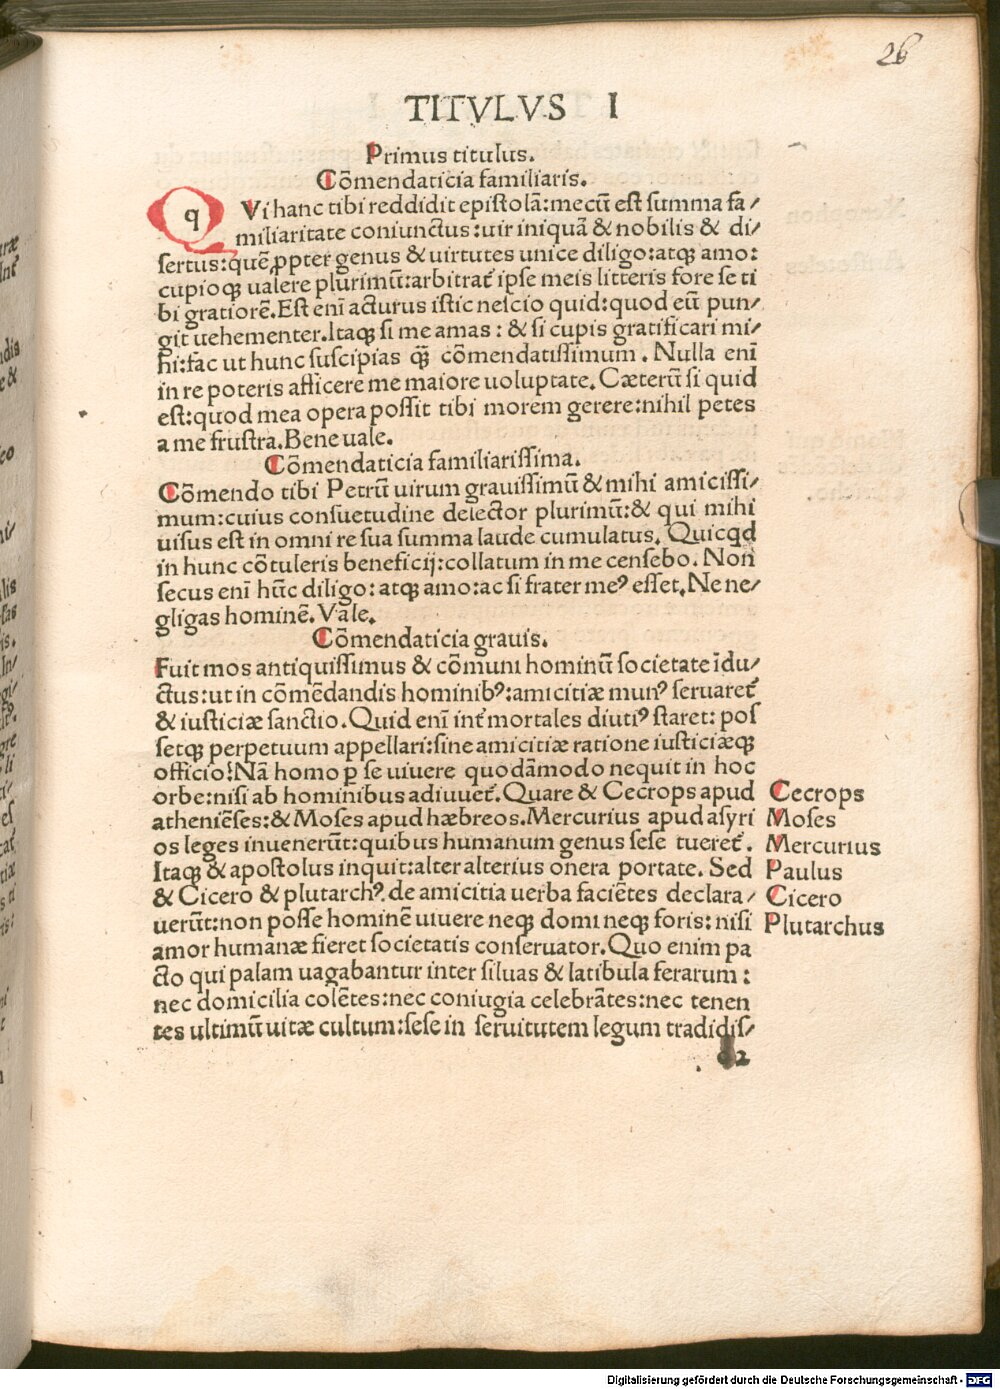 26
TITVLVS I
Primus titulus.
Cōmendaticia familiaris.
q Vi hanc tibi reddidit epistolā:mecū est summa fa/
miliaritate coniunctus:uir iniquā & nobilis & di/
sertus:quē ꝓpter genus & uirtutes unice diligo:atqꝫ amo:
cupioqꝫ ualere plurimū:arbitrat̄ ipse meis litteris fore se ti
bi gratiorē.Est enī acturus istic nescio quid:quod eū pun/
git uehementer.Itaqꝫ si me amas : & si cupis gratificari mi/
hi:fac ut hunc suscipias qꝫ̄ cōmendatissimum . Nulla enī
in re poteris afficere me maiore uoluptate.Cæterū si quid
est:quod mea opera possit tibi morem gerere:nihil petes
a me frustra.Bene uale.
Cōmendaticia familiarissima.
Cōmendo tibi Petrū uirum grauissimū & mihi amicissi/
mum:cuius consuetudine delector plurimū:& qui mihi
uisus est in omni re sua summa laude cumulatus. Quicqd
in hunc cōtuleris beneficij:collatum in me censebo. Non
secus enī hūc diligo: atqꝫ amo:ac si frater meꝰ esset.Ne ne/
gligas hominē.Vale.
Cōmendaticia grauis.
Fuit mos antiquissimus & cōmuni hominū societate īdu/
ctus:ut in cōmēdandis hominibꝰ:amicitiæ munꝰ seruaret̄
& iusticiæ sanctio.Quid enī int̄ mortales diutiꝰ staret: pos
setqꝫ perpetuum appellari:sine amicitiæ ratione iusticiæqꝫ
officio?Nā homo ꝑ se uiuere quodāmodo nequit in hoc
orbe:nisi ab hominibus adiuuet̄.Quare & Cecrops apud
atheniēses:& Moses apud hæbreos.Mercurius apud asyri
os leges inuenerūt:quibus humanum genus sese tueret̄.
Itaqꝫ & apostolus inquit:alter alterius onera portate. Sed
& Cicero & plutarchꝰ.de amicitia uerba faciētes declara/
uerūt:non posse hominē uiuere neqꝫ domi neqꝫ foris: nisi
amor humanæ fieret societatis conseruator.Quo enim pa
cto qui palam uagabantur inter siluas & latibula ferarum :
nec domicilia colētes:nec coniugia celebrātes:nec tenen
tes ultimū uitæ cultum:sese in seruitutem legum tradidis/
Cecrops
Moses
Mercurius
Paulus
Cicero
Plutarchus
Digitalisierung gefördert durch die Deutsche Forschungsgemeinschaft - DFG